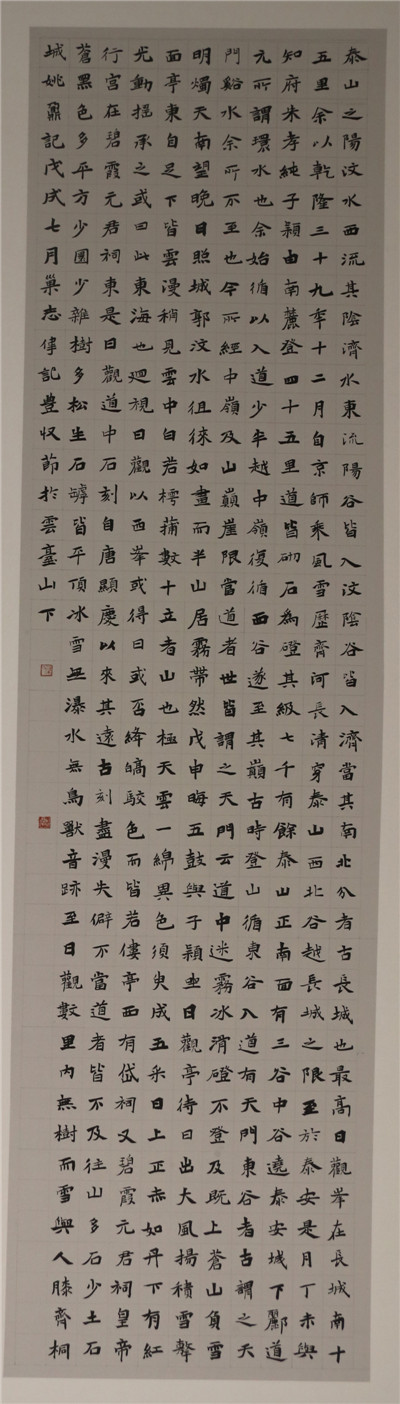 泰山之陽汶水西流其陰濟水東流陽谷皆入汶陰谷皆入濟當其南北分者古長城也最高日觀峯在長城南十
五里余以乾隆三十九年十二月自京師乘風雪歷齊河長清穿泰山西北谷越長城之限至於泰安是月丁未與
知府朱孝純子潁由南麓登四十五里道皆砌石為磴其級七千有餘泰山正南面有三谷中谷遶泰安城下酈道
元所謂環水也余始循以入道少半越中嶺復循西谷遂至其巔古時登山循東谷入道有天門東谷者古謂之天
門谿水余所不至也今所經中嶺及山巔崖限當道者世皆謂之天門云道中迷霧冰滑磴不登及既上蒼山負雪
明燭天南望晚日照城郭汶水徂徠如畫而半山居霧帶然戊申晦五鼓與子潁坐日觀亭待日出大風揚積雪擊
面亭東自足下皆雲漫稍見雲中白若樗蒲數十立者山也極天雲一綿異色須臾成五采日上正赤如丹下有紅
光動搖承之或曰此東海也迴視日觀以西峯或得日或否絳皜駮色而皆若僂亭西有岱祠又碧霞元君祠皇帝
行宮在碧霞元君祠東是日觀道中石刻自唐顯慶以來其遠古刻盡漫失僻不當道者皆不及往山多石少土石
蒼黑色多平方少圜少雜樹多松生石罅皆平頂冰雪無瀑水無鳥獸音跡至日觀數里內無樹而雪與人膝齊桐
城姚鼐記戊戌七月巢志偉記豊収節於雲臺山下